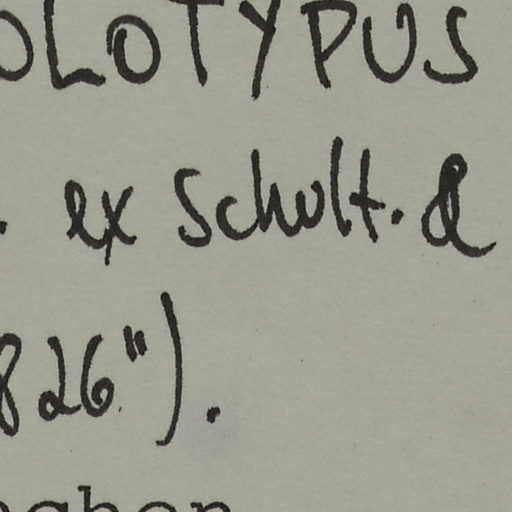 OLOTYPUS
. ex Schult. &
826").
aghen